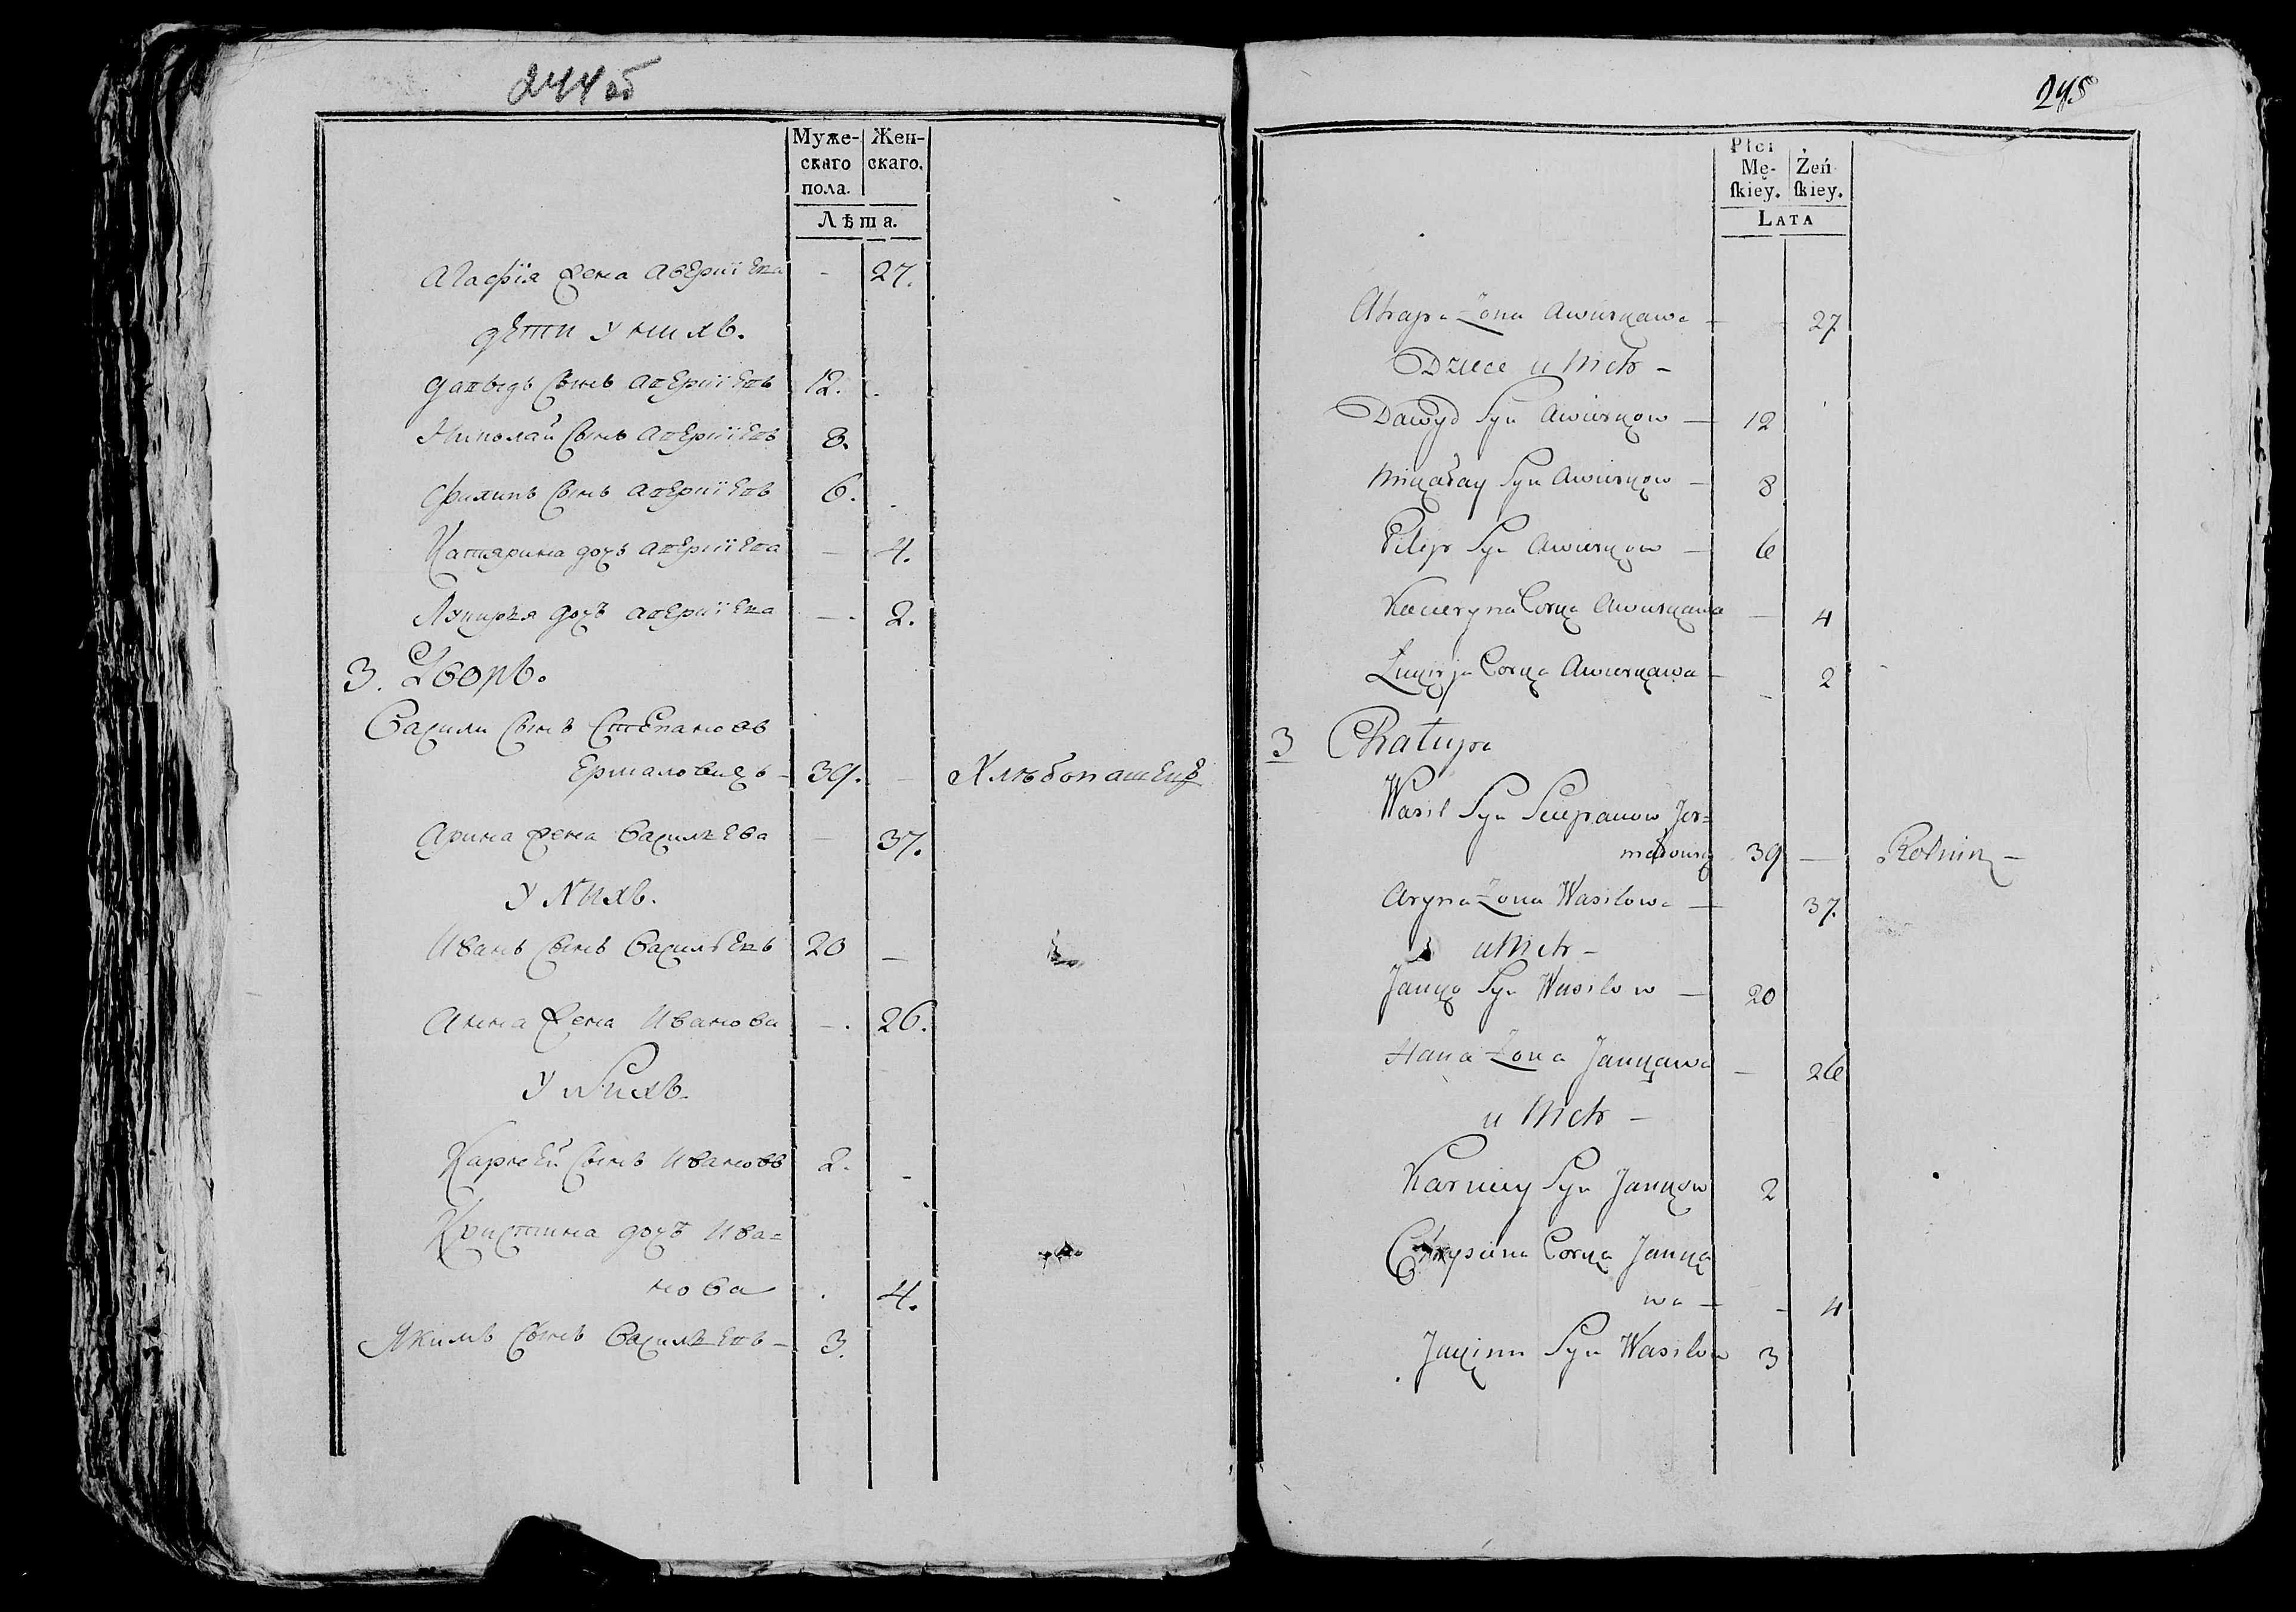 244 об
Муже-
скаго
пола.
Жен-
скаго.
Лѣта.
Агафія жена Авѐрніѐва - 27.
дѣти у нихъ.
Давыдъ сынъ Аверкіевъ 12.
Николай сынъ Аверкіевъ 8.
Филипъ сынъ Аверкіевъ 6.
Катярина дочъ Аверкіева — 4.
Лукиръя дочъ Аверкіева — 2.
3. Дворъ.
Василй сынъ Степановъ
Ермаловичъ - 39. - Хлѣбопашецъ
Арина жена Васильева — 37.
у нихъ.
Иванъ сынъ Васильевъ 20 —
Анна жена Иванова — 26.
у нихъ.
Карней сынъ Ивановъ 2. -
Кристина дочъ Ива=
нова . 4.
Якимъ сынъ Васильевъ — 3.
245
Płci
Mę-
ſkiey.
Żeń
ſkiey.
LATA
Ahapa Żona Awierkawa — 27
Dziece u Nich —
Dawyd Syn Awierkow — 12
Mikałay Syn Awierkow — 8
Pilip Syn Awierkow — 6
Kacieryna Corka Awierkawa — 4
Łukirja Corka Awierkawa — 2
3 Chatupa
Wasil Syn Sciepanow Jer=
małowicz 39 — Rolnik —
Aryna Żona Wasilowa — 37.
u Nich —
Janka Syn Wasilow — 20
Hana Żona Jankawa — 26
u Nich —
Karniey Syn Jankow 2
Chrysuna Corka Janka
wa — - 4
Jakim Syn Wasilow 3